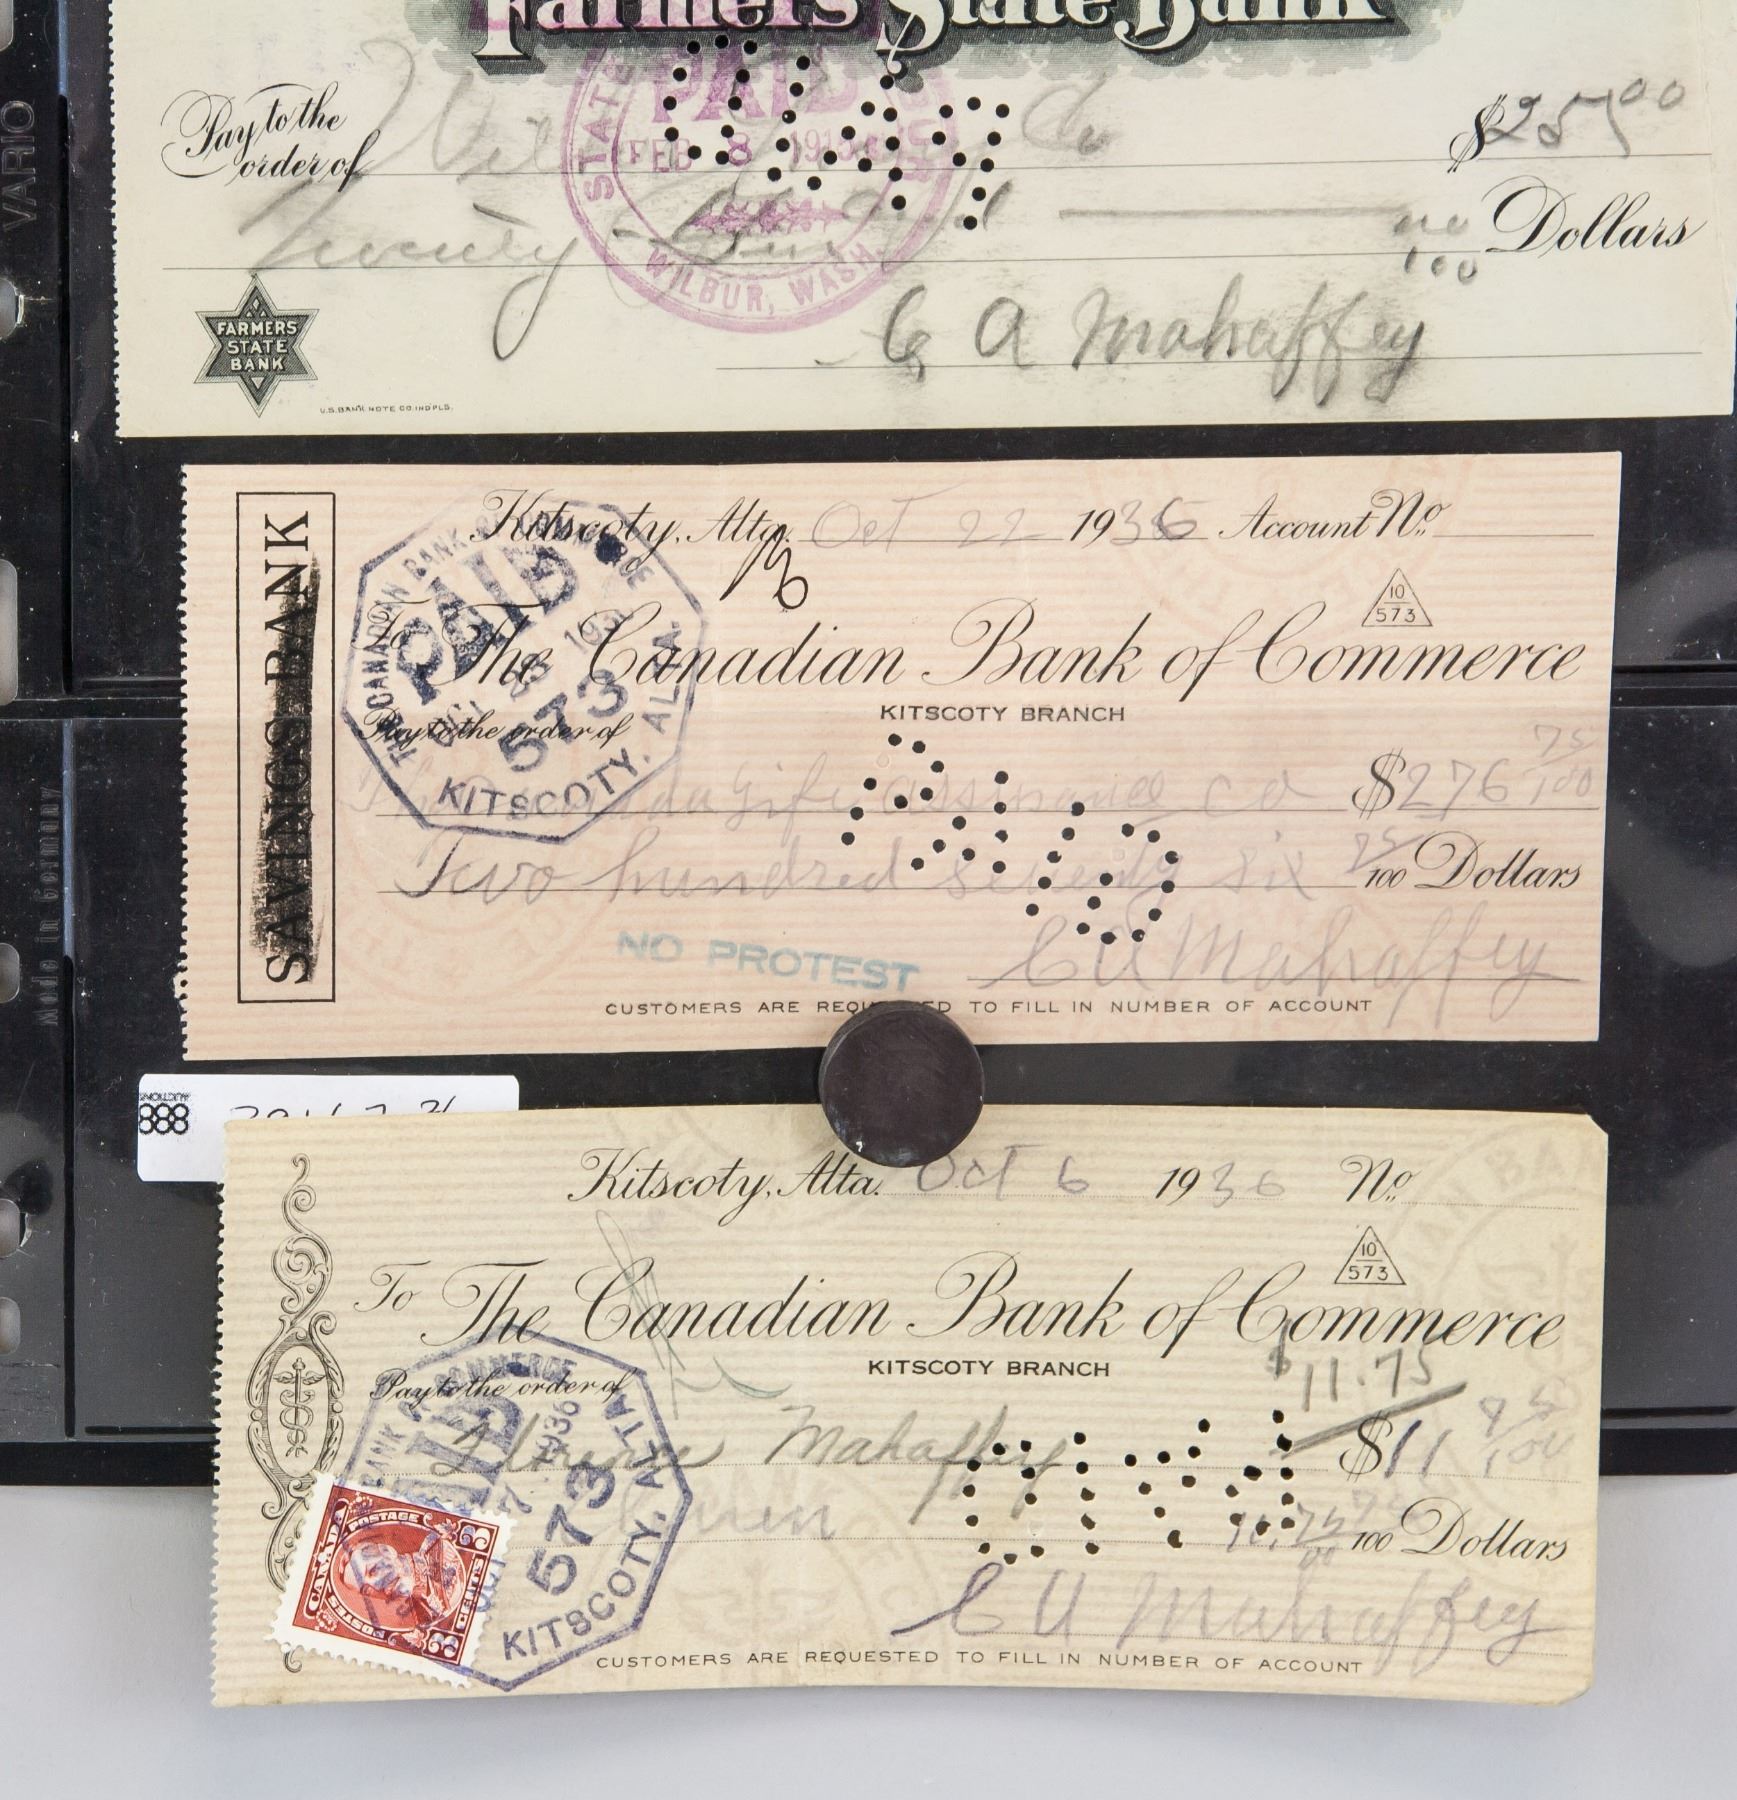 Farmers State Bank
Pay to the order of Co $25 00
PAID
FEB 8 191
STATE
WILBUR, WASH.
Twenty 00/100 Dollars
C A Mahaffey
FARMERS STATE BANK
U.S. BANK NOTE CO. INDPLS.
VARIO
Made in Germany
SAVINGS BANK
Kitscoty, Alta. Oct 22 1936 Account No.
10
573
To The Canadian Bank of Commerce
KITSCOTY BRANCH
THE CANADIAN BANK OF COMMERCE
PAID
573
KITSCOTY, ALTA.
Pay to the order of
Life Assurance Co $276 75/100
Two hundred seventy six 75/100 Dollars
NO PROTEST
C A Mahaffey
CUSTOMERS ARE REQU ED TO FILL IN NUMBER OF ACCOUNT
888
AUCTIONS
Kitscoty, Alta. Oct 6 1936 No.
10
573
To The Canadian Bank of Commerce
KITSCOTY BRANCH
$11.75
Pay to the order of
Mahaffey $11 75/100
100 Dollars
BANK OF COMMERCE
7 1936
573
KITSCOTY, ALTA.
C A Mahaffey
CANADA POSTAGE
POSTES
3 CENTS 3
CUSTOMERS ARE REQUESTED TO FILL IN NUMBER OF ACCOUNT